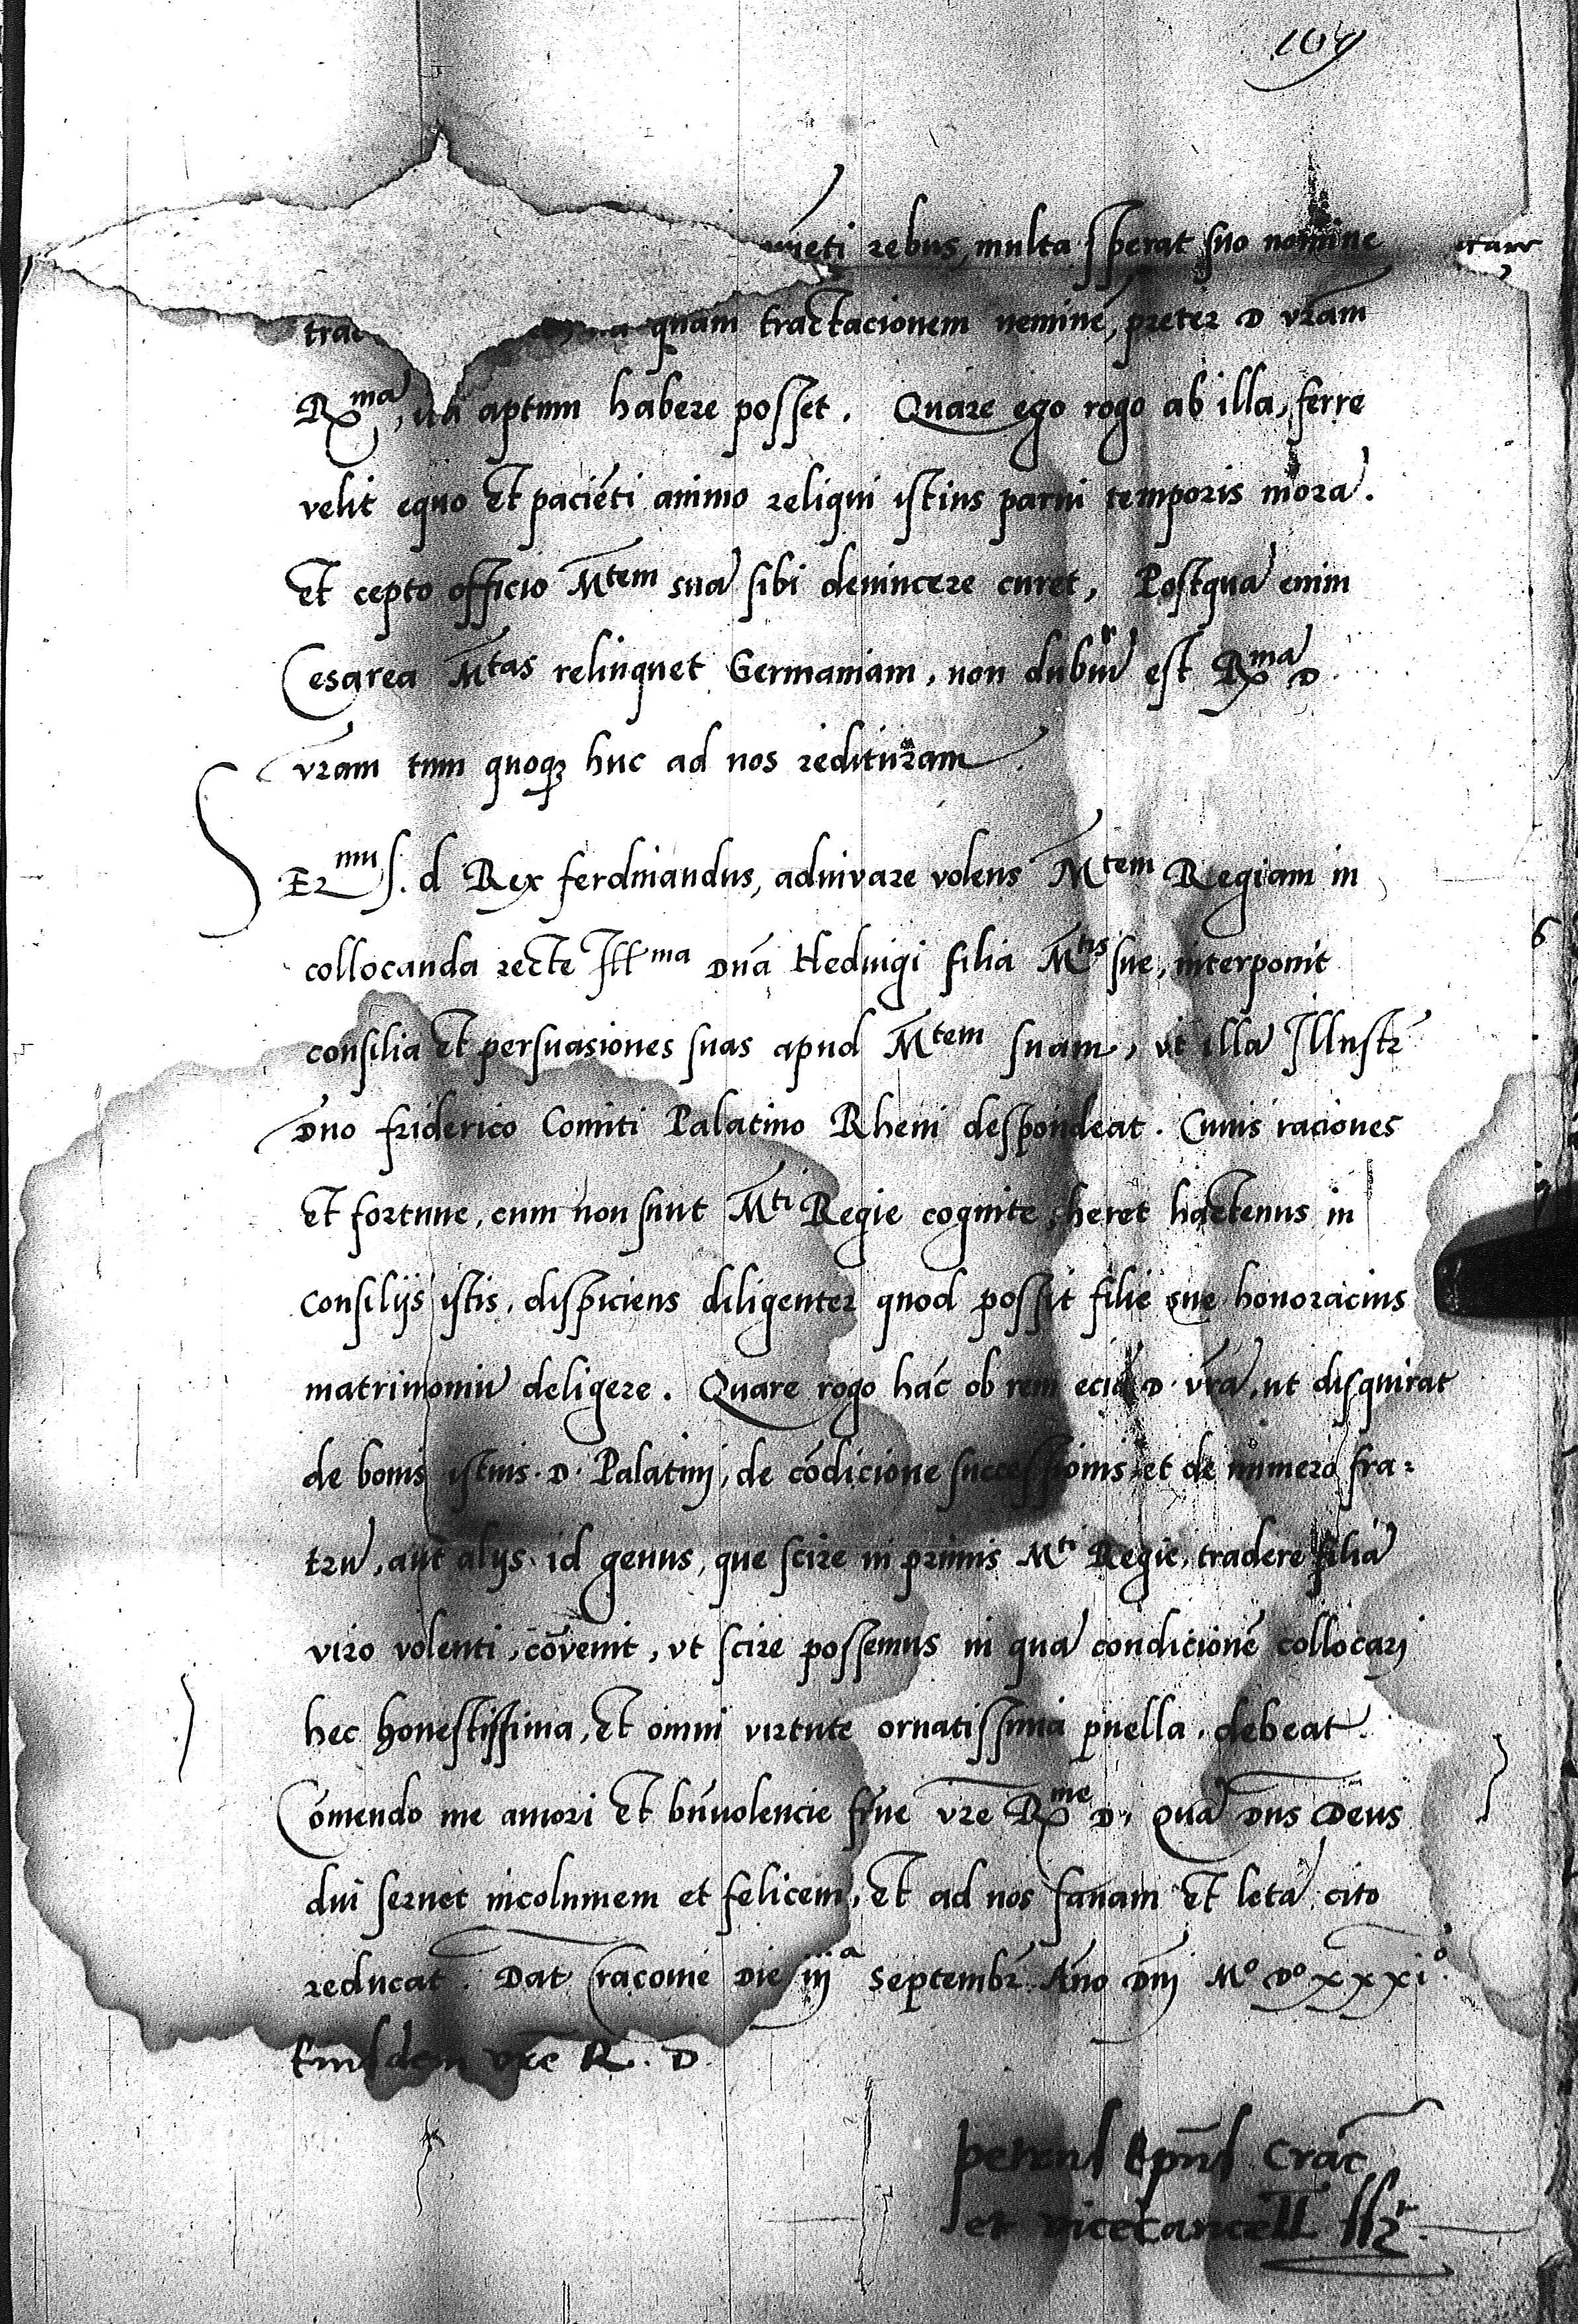 109
rebus, multa sperat suo nomine
quam tractacionem neminẽ, preter D vr̃am
Rxma, aptum habere posset. Quare ego rogo ab illa, ferre
velit equo et paciẽti animo reliqui istius parui temporis morã.
Et cepto officio Mtem suã sibi deuincere curet, Postquã enim
Cesarea Mtas relinquet Germaniam, non dubiũ est Rxmã D
vram tum quoqz huc ad nos redituram.
Sermus. d Rex ferdinandus, adiuvare volens Mtem Regiam in
collocanda recte Illma Dnã Heduigi filia Mtis sue, interponit
consilia et persuasiones suas apud Mtem suam, vt illã Illustr̃
Dno friderico Comiti Palatino Rheni despondeat. Cuius raciones
et fortune, cum non sunt Mti Regie cognite, heret hactenus in
consilijs istis, dispiciens diligenter quod possit filie sue honoracius
matrimoniũ deligere. Quare rogo hac̃ ob rem eciã D. vrã, ut disquirat
de bonis istius. D. Palatinj, de cõdicione successionis, et de numero fra-
trũ, aut alijs id genus, que scire in primis Mti Regie, tradere filiã
viro volenti, cõvenit, vt scire possemus in quã condicionẽ collocarj
hec honestissima, et omni virtute ornatissima puella, debeat.
Comendo me amori et bñuolencie frñe vre Rxme D, Quã Dns Deus
diu seruet incolumem et felicem, et ad nos sanam et letã cito
reducat. Dat Cracovie Die iija Septembr̃. Año Dnj Mo Do xxxio.
Eiusdem vre R. D.
petrus Ep̃us Crac̃
et vicecancell